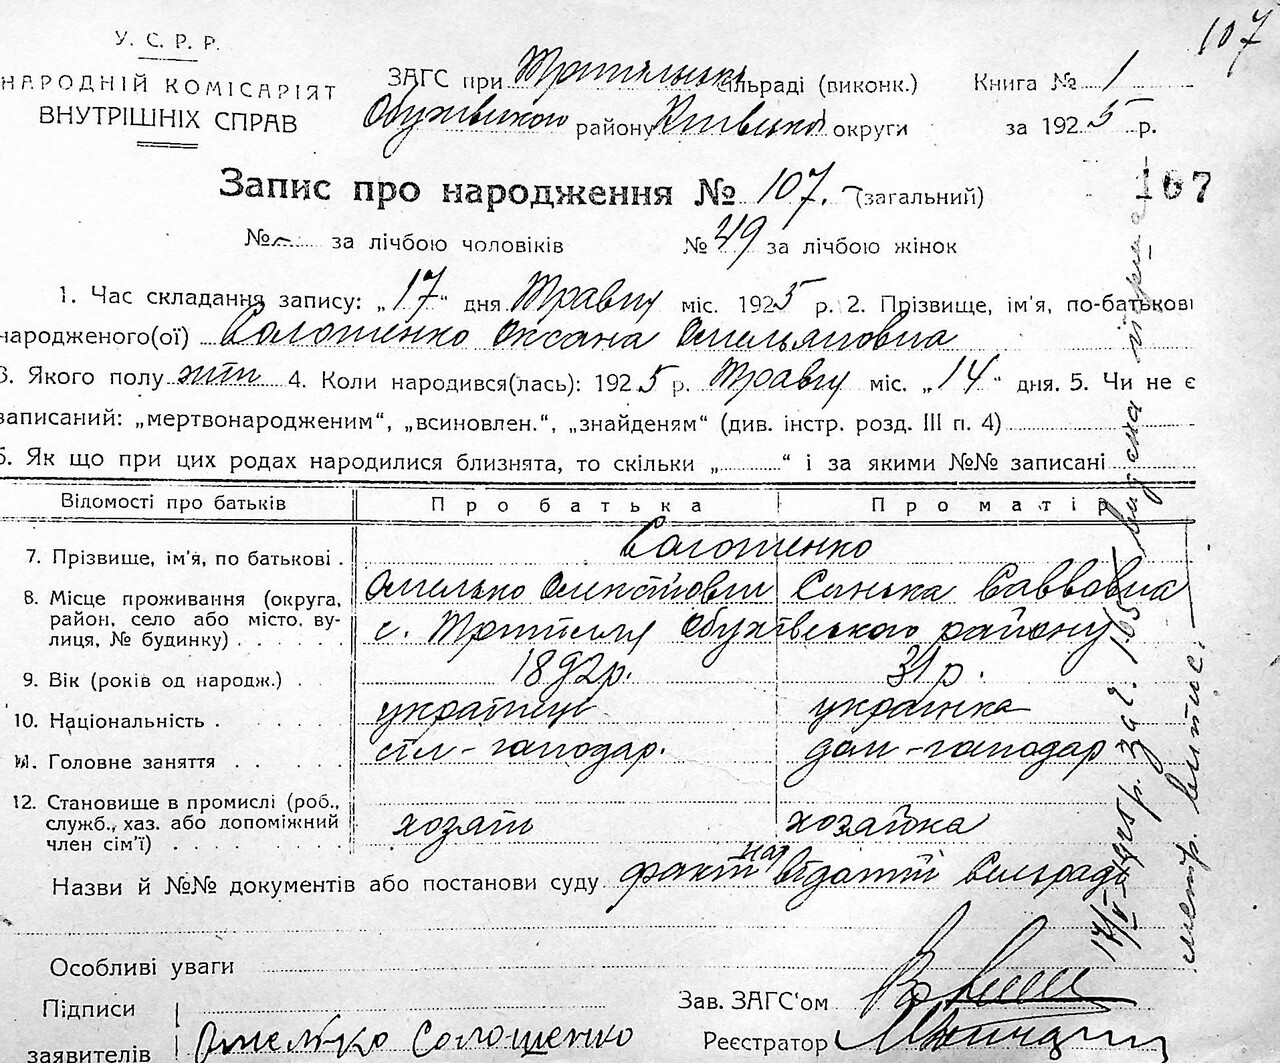 107
У. С. Р. Р.
НАРОДНІЙ КОМІСАРІЯТ
ВНУТРІШНІХ СПРАВ
ЗАГС при Трипільськ сільраді (виконк.)
Обухівського району Київської округи
Книга № 1
за 1925 р.
Запис про народження № 107. (загальний)
107
№ - за лічбою чоловіків № 49 за лічбою жінок
1. Час складання запису: „17“ дня Травня міс. 1925 р. 2. Прізвище, ім'я, по-батькові
народженого(ої) Солошенко Оксана Омельяновна
3. Якого полу жін 4. Коли народився(лась): 1925 р. Травня міс. „14“ дня. 5. Чи не є
записаний: „мертвонародженим“, „всиновлен.“, „знайденям“ (див. інстр. розд. III п. 4)
6. Як що при цих родах народилися близнята, то скільки „ “ і за якими №№ записані
Відомості про батьків Про батька Про матір
7. Прізвище, ім'я, по батькові . Солошенко
Омелько Олексійович Санька Савовна
8. Місце проживання (округа,
район, село або місто, ву-
лиця, № будинку) . с. Трипілля Обухівського району
9. Вік (років од народж.) . 1892 р. 31 р.
10. Національність . українець українка
11. Головне заняття . сіл-господар. дом-господар
12. Становище в промислі (роб.,
служб., хаз. або допоміжний
член сім'ї) . хозяїн хозяйка
Назви й №№ документів або постанови суду факт на Сельради
Особливі уваги
Підписи
заявителів Омелько Солошенко
Зав. ЗАГС'ом
Реєстратор
17/V 1925 р. за ч. 165 видана
метр. витис.